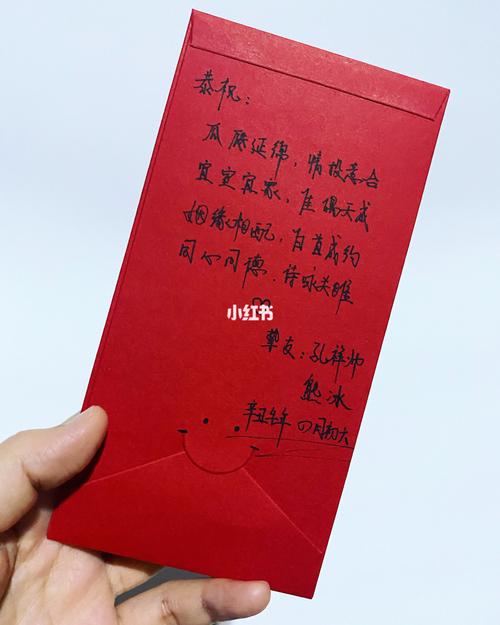 恭祝：
瓜瓞延绵，情投意合
宜室宜家，佳偶天成
姻缘相配，白首成约
同心同德，诗咏关雎
小红书
挚友：孔祥帅
熊冰
辛丑牛年 四月初六